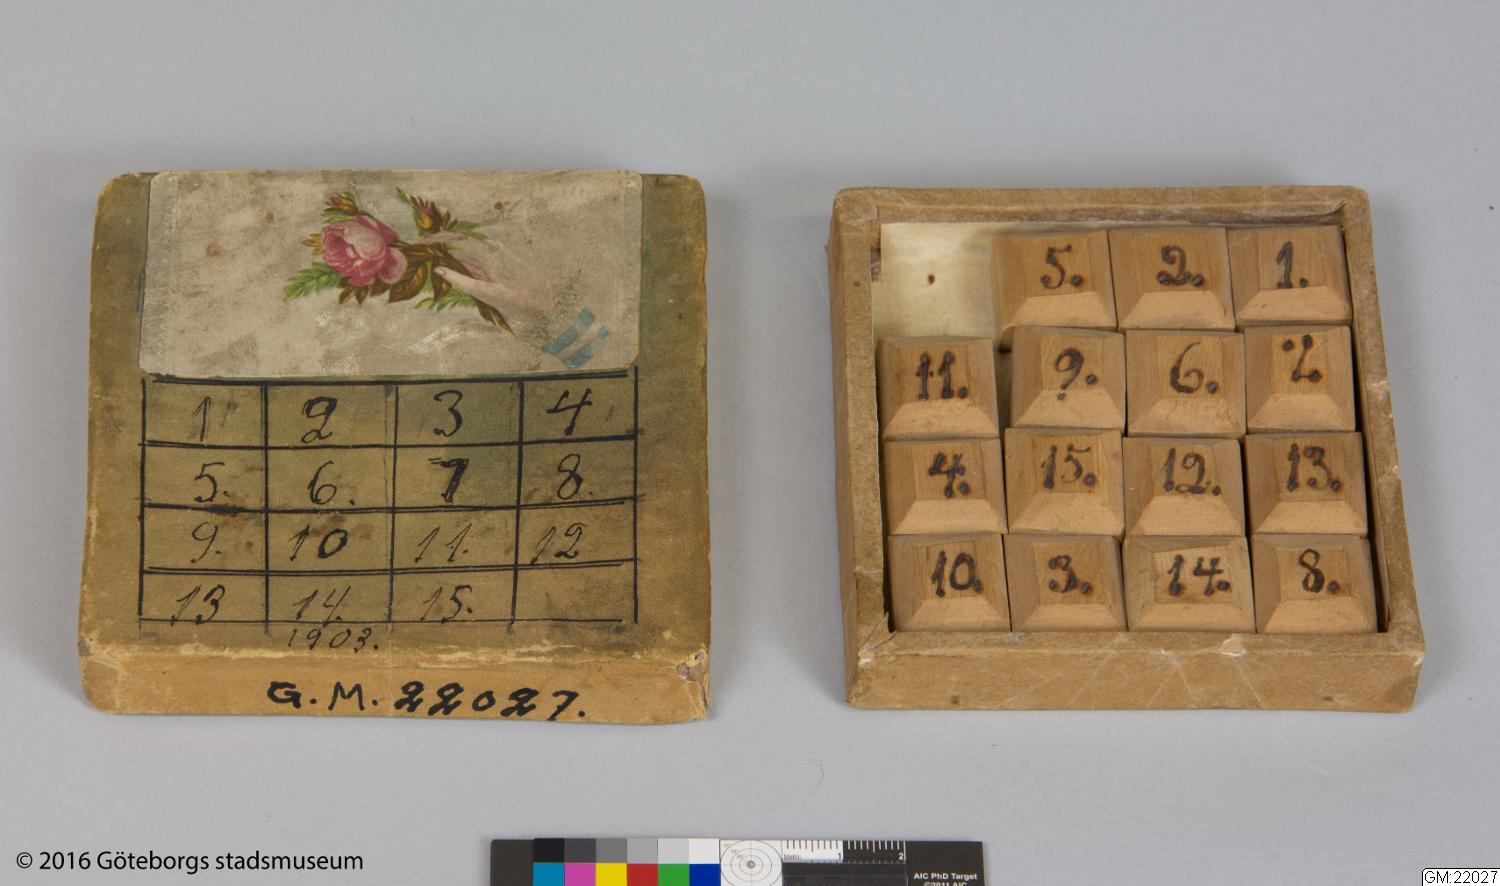 1 2 3 4
5. 6. 7 8.
9. 10 11. 12
13 14. 15.
1903.
G.M. 22027.
5. 2. 1.
11. 9. 6.
4. 15. 12. 13.
10. 3. 14. 8.
© 2016 Göteborgs stadsmuseum
1 2
AIC PhD Target
©2011 AIC
GM:22027